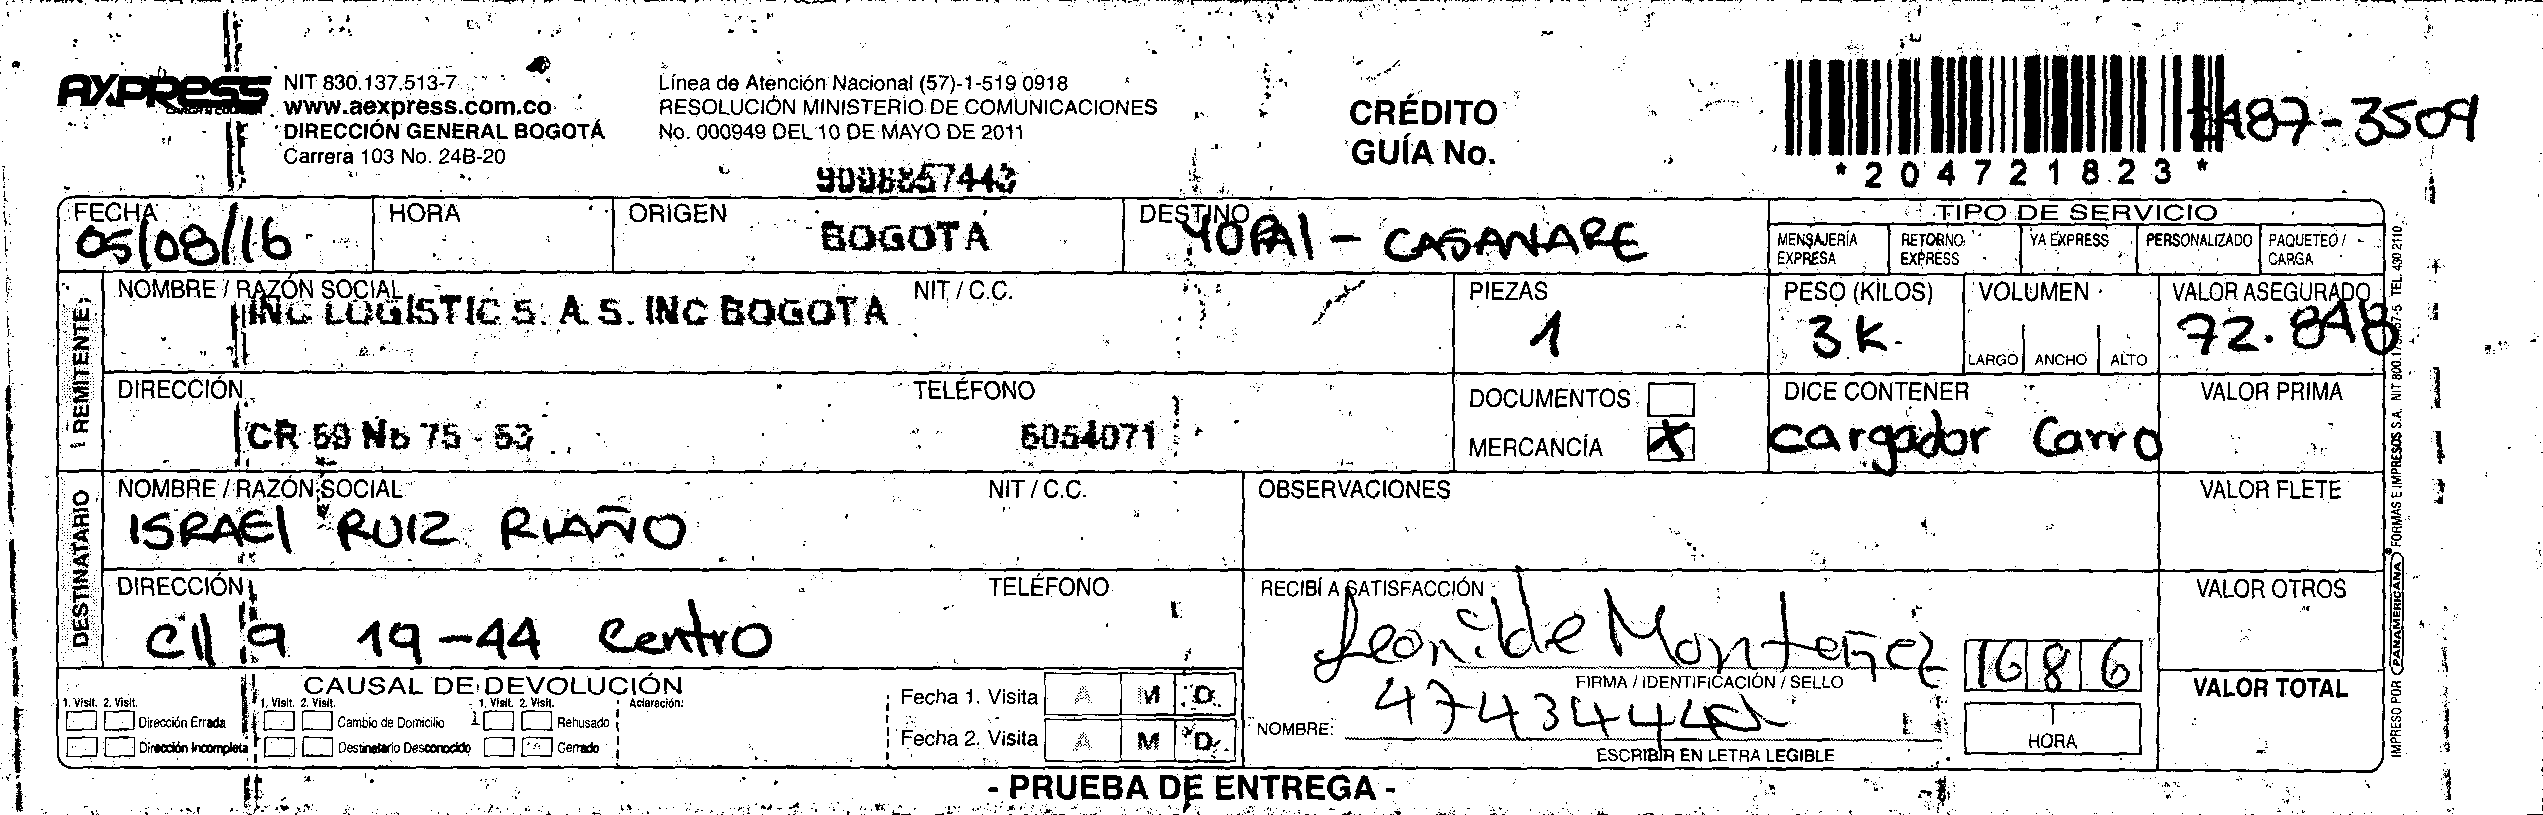 AXPRESS
NIT 830.137.513-7
www.aexpress.com.co
DIRECCIÓN GENERAL BOGOTÁ
Carrera 103 No. 24B-20
Línea de Atención Nacional (57)-1-519 0918
RESOLUCIÓN MINISTERIO DE COMUNICACIONES
No. 000949 DEL 10 DE MAYO DE 2011
9008857443
CRÉDITO
GUÍA No.
487-3509
*204721823*
FECHA 05/08/16
HORA
ORIGEN BOGOTA
DESTINO YOPAl - CASANARE
TIPO DE SERVICIO
MENSAJERÍA EXPRESA
RETORNO EXPRESS
YA EXPRESS
PERSONALIZADO
PAQUETEO / CARGA
REMITENTE
NOMBRE / RAZÓN SOCIAL
INC LOGISTIC S. A S. INC BOGOTA
NIT / C.C.
PIEZAS
1
PESO (KILOS)
3 K.
VOLUMEN
LARGO ANCHO ALTO
VALOR ASEGURADO
72.848
DIRECCIÓN
CR 69 No 75 - 53
TELÉFONO
6054071
DOCUMENTOS
MERCANCÍA X
DICE CONTENER
Cargador Carro
VALOR PRIMA
DESTINATARIO
NOMBRE / RAZÓN SOCIAL
ISRAEl RUIZ RIAÑO
NIT / C.C.
OBSERVACIONES
VALOR FLETE
DIRECCIÓN
Cll 9 19-44 Centro
TELÉFONO
RECIBÍ A SATISFACCIÓN
Leonilde Montañez
FIRMA / IDENTIFICACIÓN / SELLO
16 8 6
VALOR OTROS
CAUSAL DE DEVOLUCIÓN
1. Visit. 2. Visit.
1. Visit. 2. Visit.
1. Visit. 2. Visit.
Aclaración:
Dirección Errada
Cambio de Domicilio
Rehusado
Dirección Incompleta
Destinatario Desconocido
Cerrado
Fecha 1. Visita A M D
Fecha 2. Visita A M D
NOMBRE:
ESCRIBIR EN LETRA LEGIBLE
HORA
VALOR TOTAL
- PRUEBA DE ENTREGA -
IMPRESO POR PANAMERICANA FORMAS E IMPRESOS S.A. NIT
TEL. 430 2110